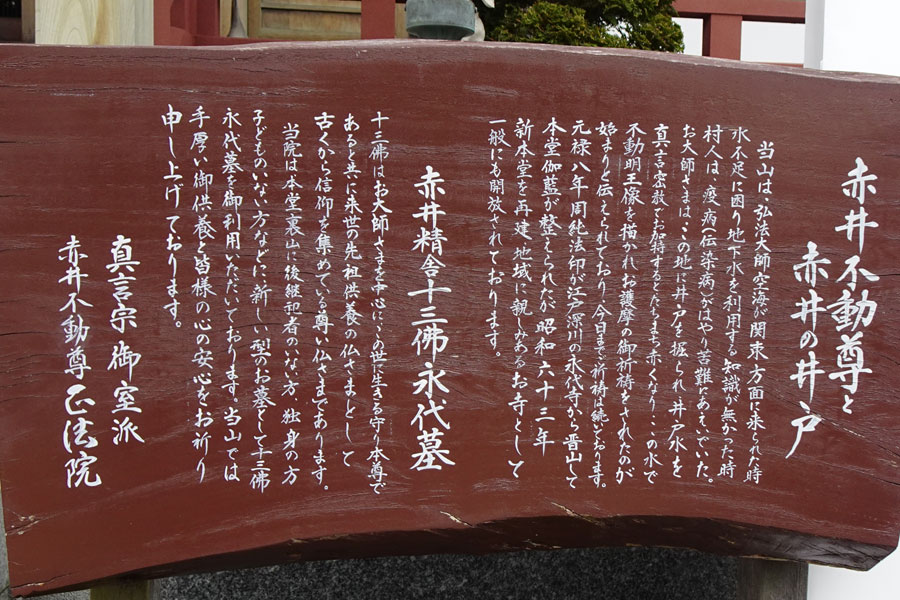 赤井不動尊と
赤井の井戸
当山は、弘法大師空海が関東方面に来られた時
水不足に困り地下水を利用する知識が無かった時
村人は、疫病(伝染病)がはやり苦難にあえいでいた。
お大師さまは、この地に井戸を掘られ、井戸水を
真言密教でお加持するとたちまち赤くなり、この水で
不動明王像を描かれお護摩の御祈祷をされたのが
始まりと伝えられており、今日まで祈祷は続いております。
元禄八年周純法印が江戸深川の永代寺から晋山して
本堂伽藍が整えられたが昭和六十三年
新本堂を再建 地域に親しみあるお寺として
一般にも開放されております。
赤井精舎十三佛永代墓
十三佛はお大師さまを中心にこの世に生きる守り本尊で
あると共に来世の先祖供養の仏さまとして
古くから信仰を集めている尊い仏さまであります。
当院は本堂裏山に後継祀者のいない方、独身の方
子どものいない方などに新しい型のお墓として十三佛
永代墓を御利用いただいております。当山では
手厚い御供養と皆様の心の安心をお祈り
申し上げております。
真言宗 御室派
赤井不動尊 正法院